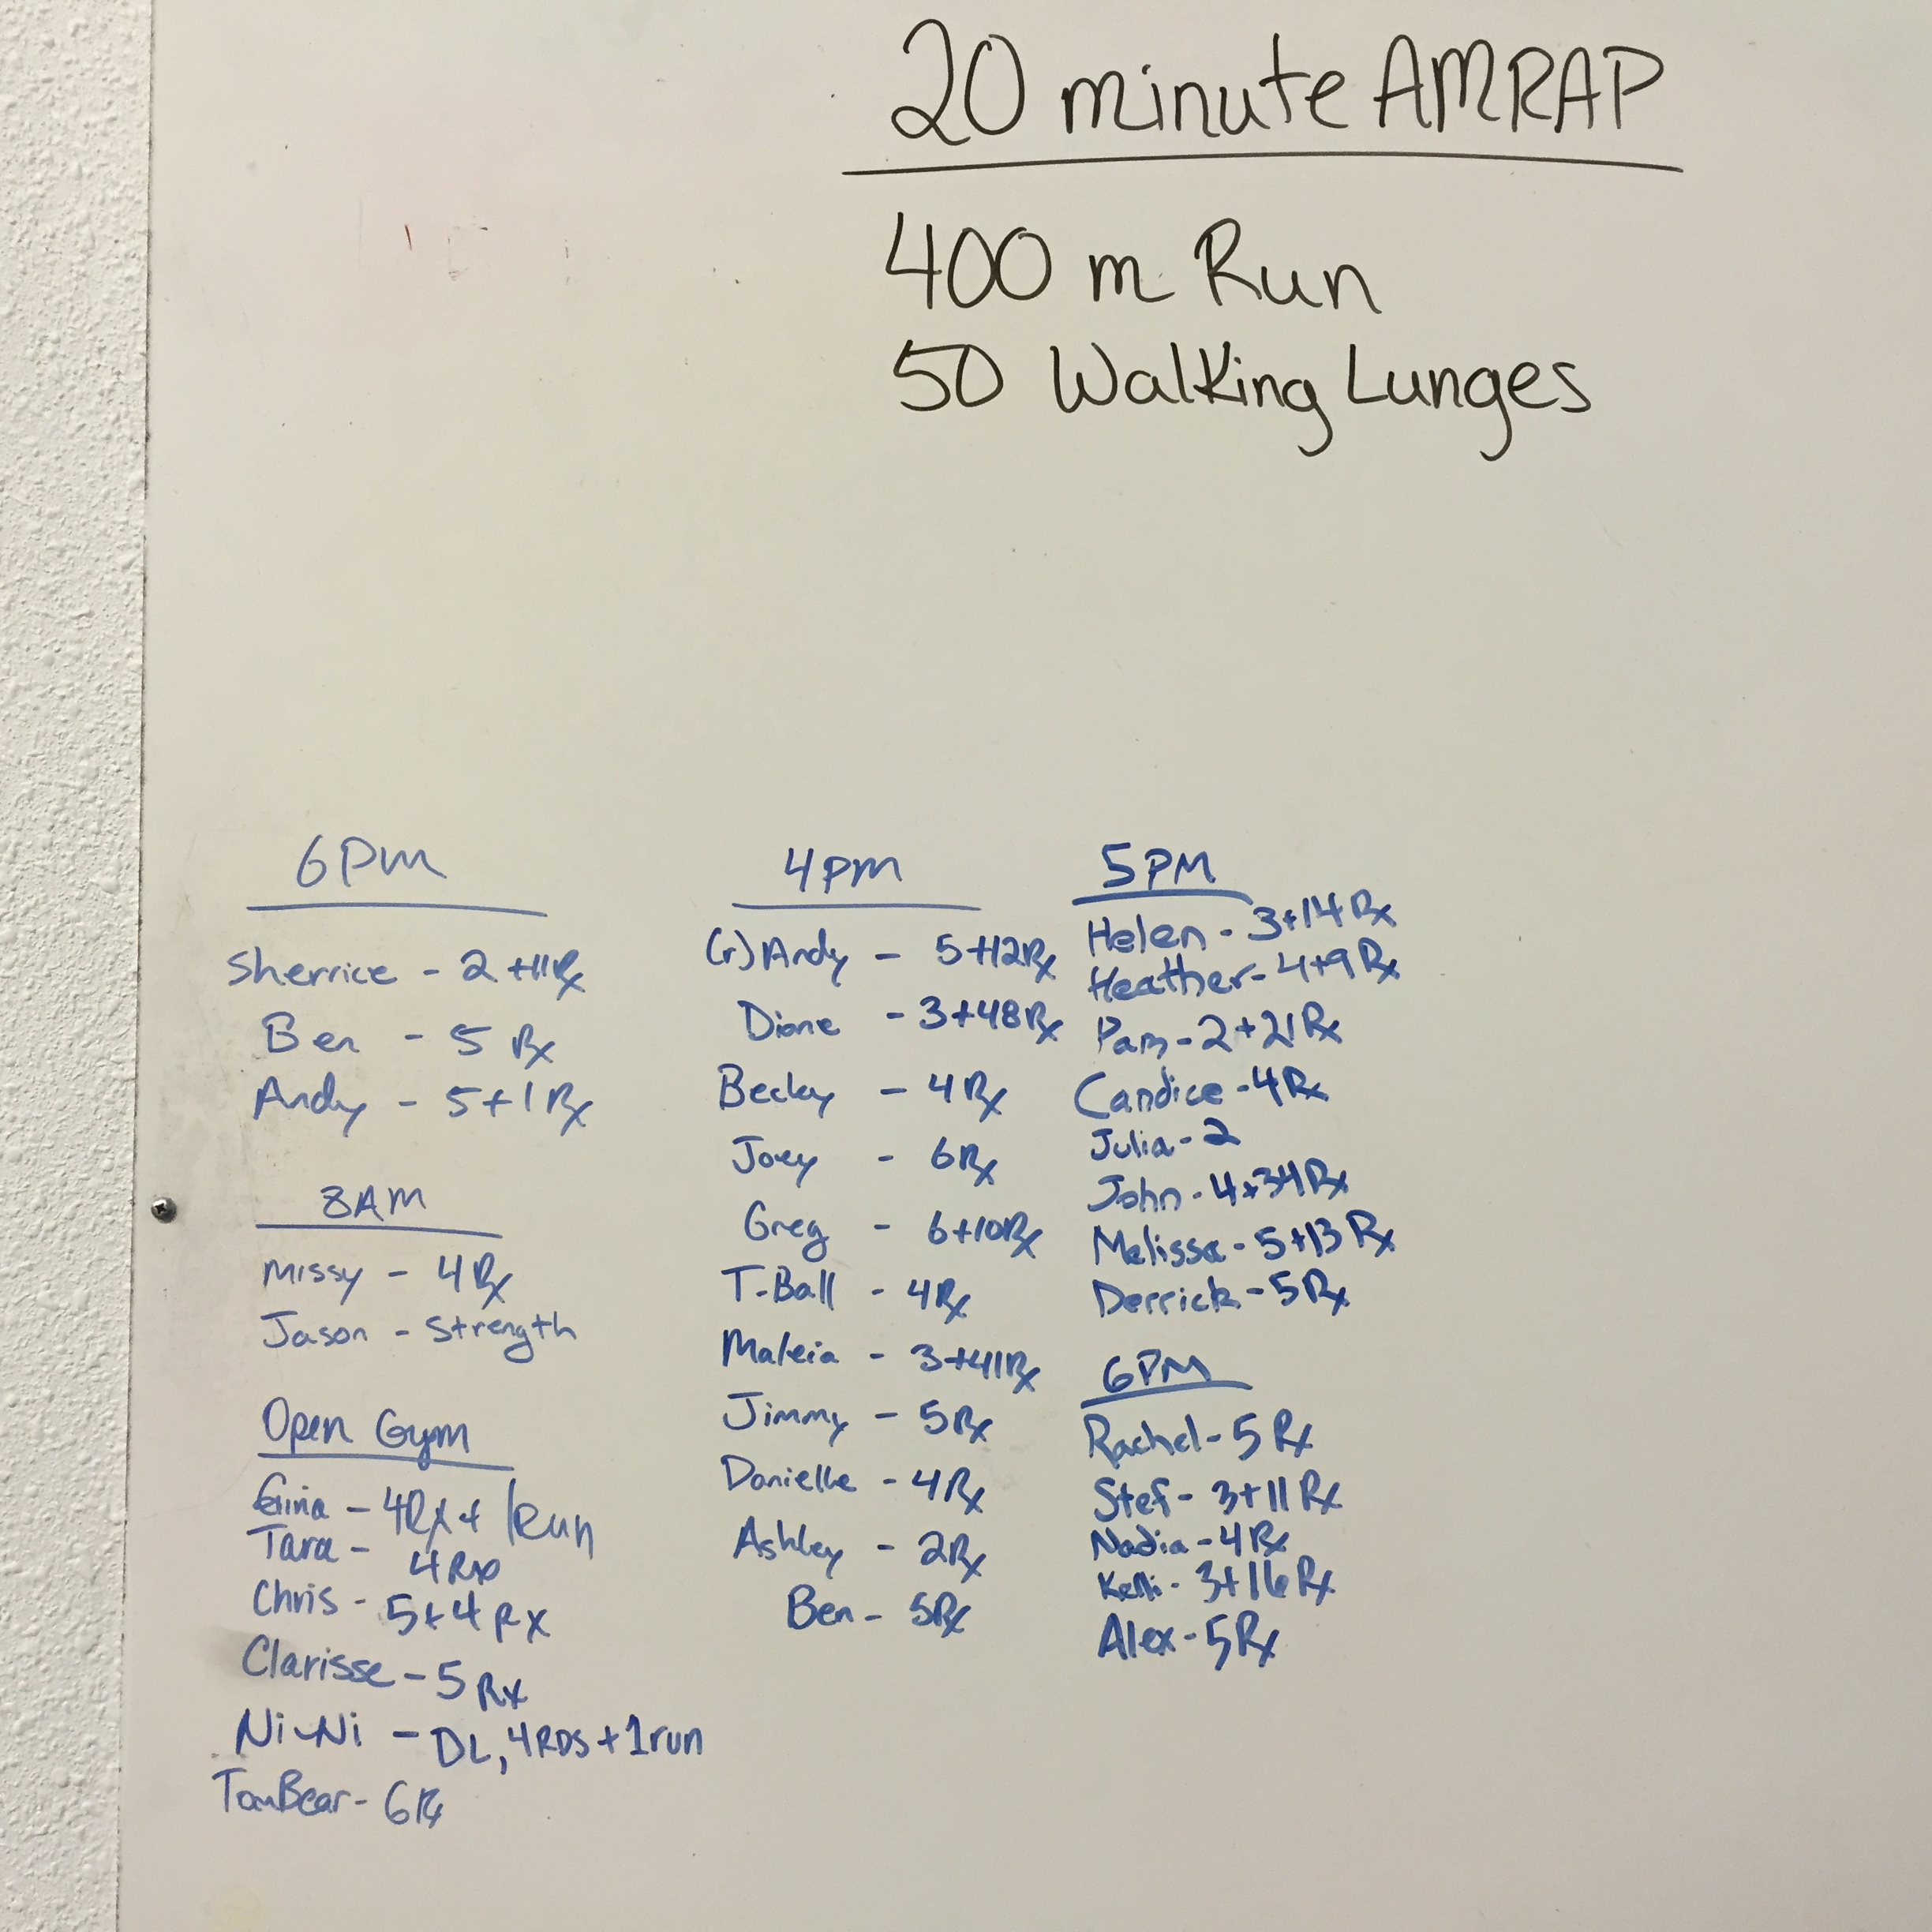 20 minute AMRAP
400 m Run
50 Walking Lunges
6PM
Sherrice - 2+11Rx
Ben - 5 Rx
Andy - 5+1Rx
8AM
Missy - 4Rx
Jason - Strength
Open Gym
Gina - 4Rx + 1 Run
Tara - 4Rx
Chris - 5+4 Rx
Clarisse - 5 Rx
Ni-Ni - DL, 4RDS + 1run
TomBear - 6Rx
4PM
(r) Andy - 5+12Rx
Diane - 3+48Rx
Becky - 4Rx
Joey - 6Rx
Greg - 6+10Rx
T-Ball - 4Rx
Maleia - 3+41Rx
Jimmy - 5Rx
Danielle - 4Rx
Ashley - 2Rx
Ben - 5Rx
5PM
Helen - 3+14Rx
Heather - 4+9Rx
Pam - 2+21Rx
Candice - 4Rx
Julia - 2
John - 4+34Rx
Melissa - 5+13Rx
Derrick - 5Rx
6PM
Rachel - 5Rx
Stef - 3+11Rx
Nadia - 4Rx
Kelli - 3+16Rx
Alex - 5Rx